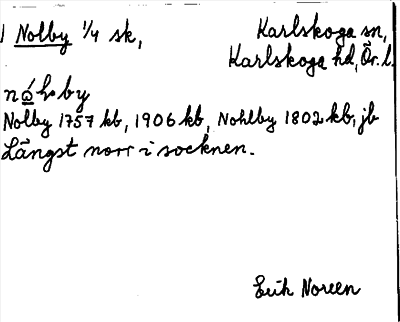 Nolby 1/4 sk, Karlskoga sn,
Karlskoga hd, Ör. l.
Nolby 1757 kb, 1906 kb, Nohlby 1802 kb, jb
Längst norr i socknen.
Erik Noreen